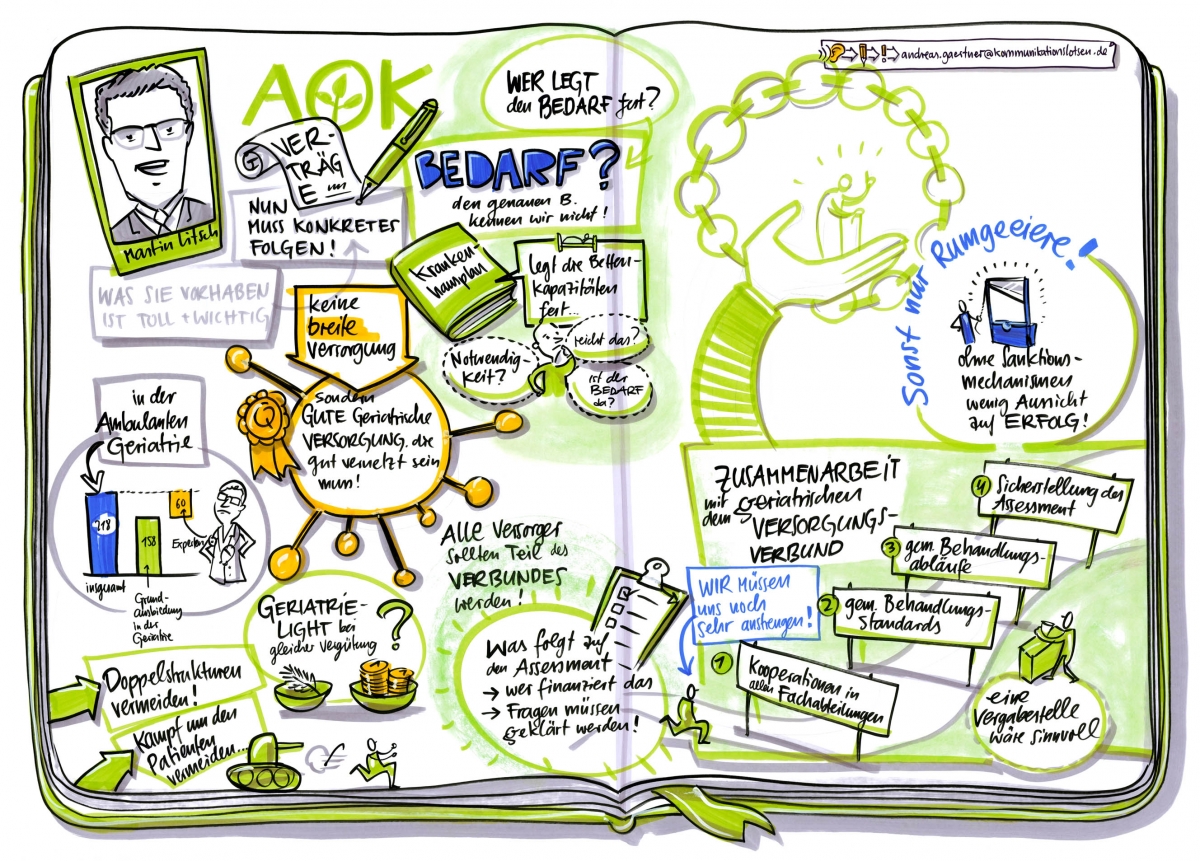 andreas.gaertner@kommunikationslotsen.de
AOK
Martin Litsch
VER-
TRÄG
E
NUN
MUSS KONKRETES
FOLGEN!
WAS SIE VORHABEN
IST TOLL + WICHTIG
WER LEGT
den BEDARF fest?
BEDARF?
den genauen B.
kennen wir nicht!
Kranken-
hausplan
legt die Betten-
Kapazitäten
fest...
Notwendig-
keit?
reicht das?
ist der
BEDARF
da?
keine
breite
Versorgung
Sondern
GUTE Geriatrische
VERSORGUNG, die
gut vernetzt sein
muss!
Q
in der
Ambulanten
Geriatrie
218
158
60
Experten
insgesamt
Grund-
ausbildung
in der
Geriatrie
GERIATRIE-
LIGHT bei
gleicher Vergütung
?
Doppelstrukturen
vermeiden!
Kampf um den
Patienten
vermeiden...
€
ALLE Versorger
sollten Teil des
VERBUNDES
werden!
Was folgt auf
den Assessment
→ wer finanziert das
→ Fragen müssen
geklärt werden!
Sonst nur Rumgeeiere!
ohne Sanktions-
mechanismen
wenig Aussicht
auf ERFOLG!
ZUSAMMENARBEIT
mit dem geriatrischen
VERSORGUNGS-
VERBUND
WIR MÜSSEN
uns noch
Sehr anstrengen!
1 Kooperationen in
allen Fachabteilungen
2 gem. Behandlungs-
Standards
3 gem. Behandlungs-
abläufe
4 Sicherstellung des
Assessment
eine
Vergabestelle
wäre sinnvoll